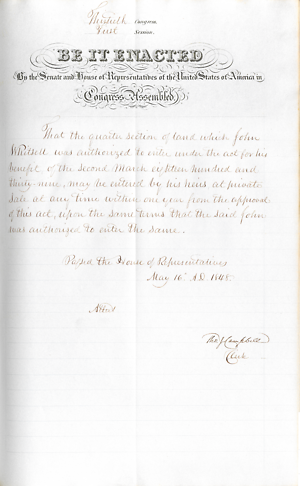 Thirtieth Congress,
First Session.
BE IT ENACTED
By the Senate and House of Representatives of the United States of America in
Congress Assembled
That the quarter section of land which John
Whitsell was authorized to enter under the act for his
benefit of the second March eighteen hundred and
thirty-nine, may be entered by his heirs at private
sale at any time within one year from the approval
of this act, upon the same terms that the said John
was authorized to enter the same.
Passed the House of Representatives
May 10th A.D. 1848.
Attest
Tho J Campbell
Clerk